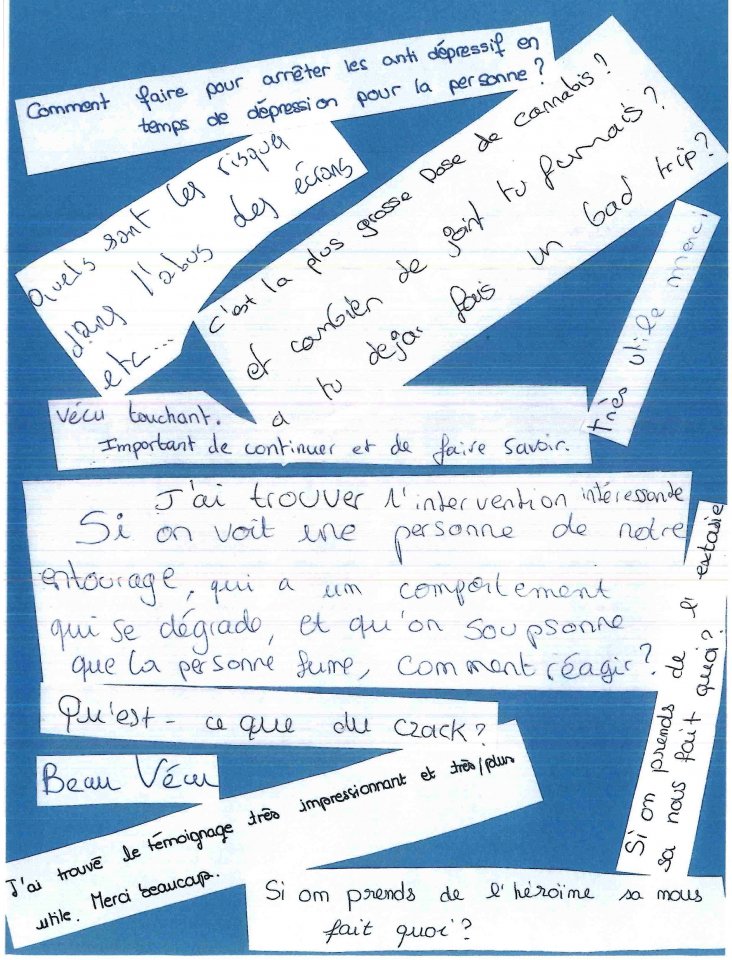 Comment faire pour arrêter les anti dépressif en
temps de dépression pour la personne?
Quels sont les risques
dans l'abus des écrans
etc...
C'est la plus grosse Dose de cannabis?
et combien de joint tu fumais?
a tu dejàs fais un bad trip?
très utile merci
Vécu touchant.
Important de continuer et de faire savoir.
J'ai trouver l'intervention intéressante
Si on voit une personne de notre
entourage, qui a um comportement
qui se dégrade, et qu'on soupsonne
que la personne fume, comment réagir?
Si on prends de l'extasie
sa nous fait quoi?
Qu'est-ce que du crack?
Beau Vécu
J'ai trouvé le témoignage très impressionnant et très/plus
utile. Merci beaucoup.
Si om prends de l'héroïne sa nous
fait quoi?